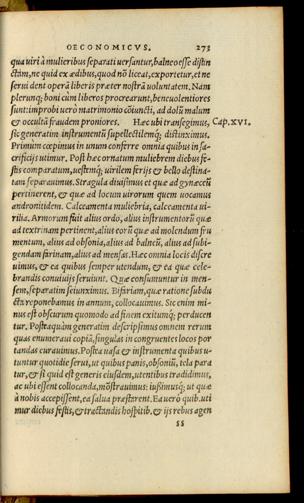 OECONOMICVS. 273
qua uiri à mulieribus separati uersantur, balneo esse distin
ctim, ne quid ex ædibus, quod nō liceat, exportetur, et ne
serui dent operā liberis præter nostrā uoluntatem. Nam
plerunq; boni cùm liberos procrearunt, beneuolentiores
sunt: improbi uerò matrimonio cōiuncti, ad dolū malum
& occultā fraudem proniores. Hæc ubi transegimus, Cap.XVI.
sic generatim instrumentū supellectilemq; distinximus.
Primùm cœpimus in unum conferre omnia quibus in sa-
crificijs utimur. Post hæc ornatum muliebrem diebus fe-
stis comparatum, uestemq; uirilem ferijs & bello destina-
tam separauimus. Stragula diuisimus et quæ ad gynæceū
pertinerent, & quæ ad locum uirorum quem uocamus
andronitidem. Calceamenta muliebria, calceamenta ui-
rilia. Armorum fuit alius ordo, alius instrumentorū quæ
ad textrinam pertinent, alius eorū quæ ad molendum fru
mentum, alius ad obsonia, alius ad balneū, alius ad subi-
gendam farinam, alius ad mensas. Hæc omnia locis discre
uimus, & ea quibus semper utendum, & ea quæ cele-
brandis conuiuijs seruiunt. Quæ consumuntur in men-
sem, separatim seiunximus. Bifariam, quæ ratione subdu
cta reponebamus in annum, collocauimus. Sic enim mi-
nus est obscurum quomodo ad finem exitumq; perducen
tur. Postea quàm generatim descripsimus omnem rerum
quas enumeraui copiā, singulas in congruentes locos por
tandas curauimus. Postea uasa & instrumenta quibus u-
tuntur quotidie serui, ut quibus panis, obsoniū, tela para
tur, & si quid est generis eiusdem, utentibus tradidimus,
ac ubi essent collocanda, mōstrauimus: iussimusq; ut quæ
à nobis accepissent, ea salua præstarent. Ea uerò quib. uti
mur diebus festis, & tractandis hospitib. & ijs rebus agen
ss